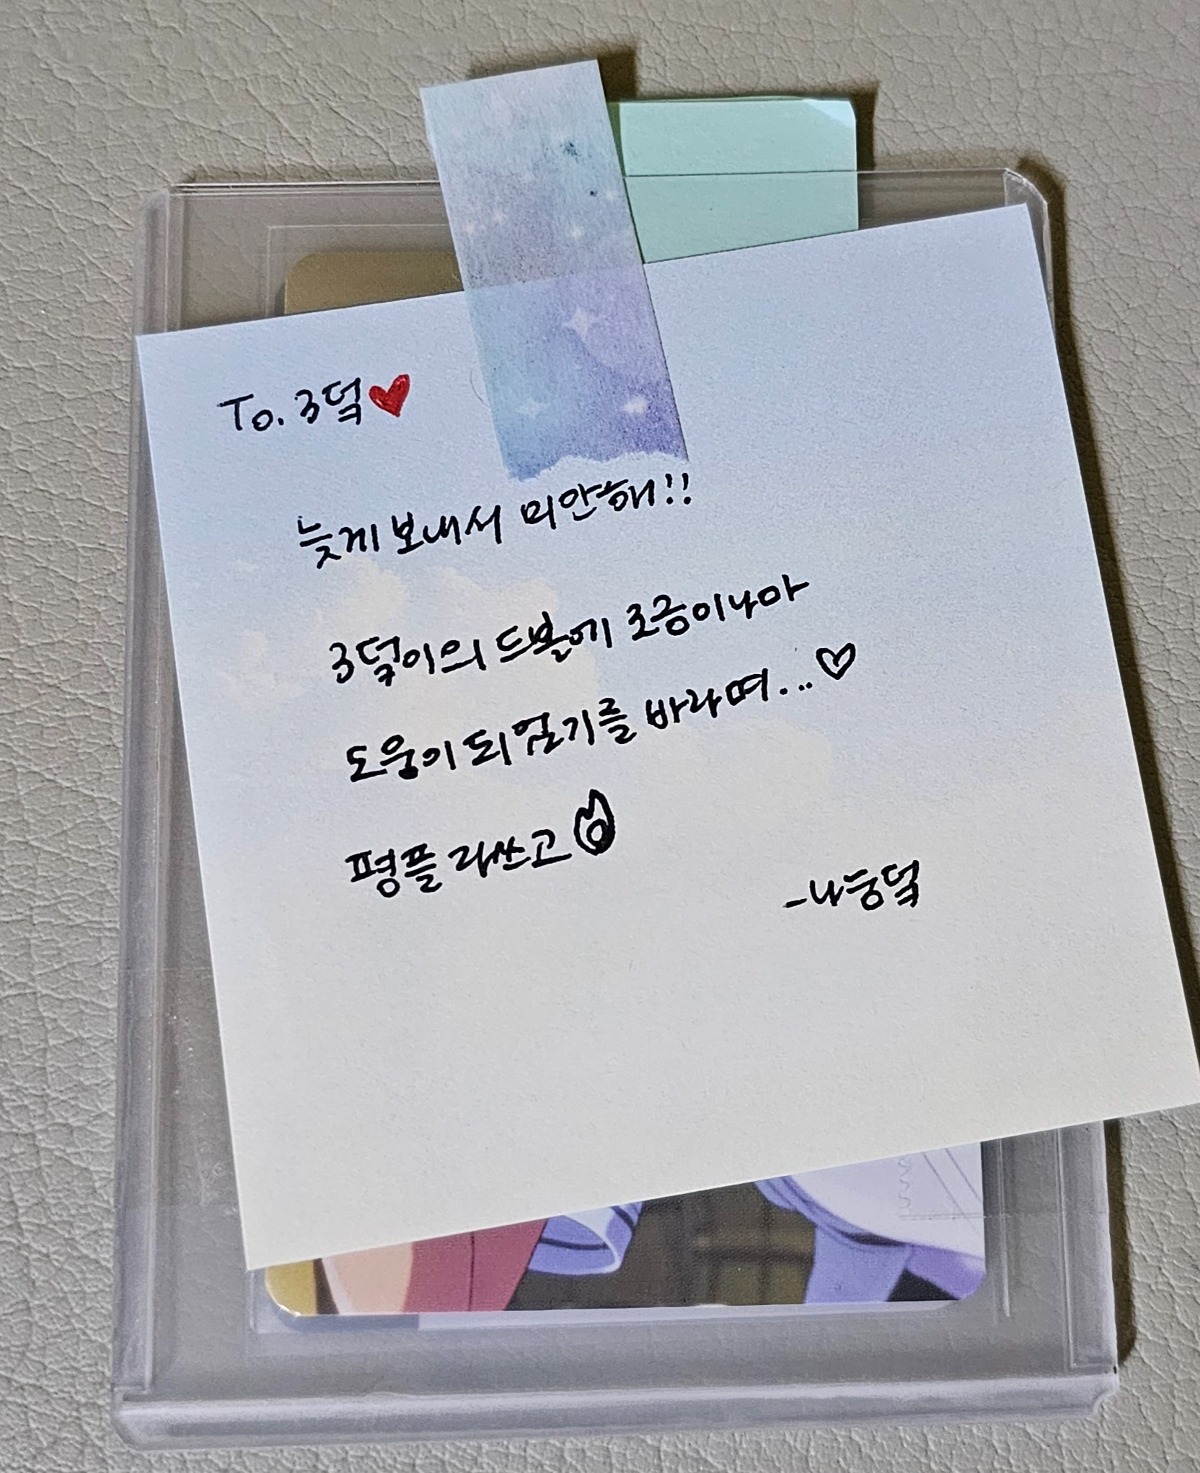 To. 3덕❤️
늦게 보내서 미안해!!
3덕이의 드볼에 조금이나마
도움이 되었기를 바라며...♡
평플 라쓰고
-나눙덕